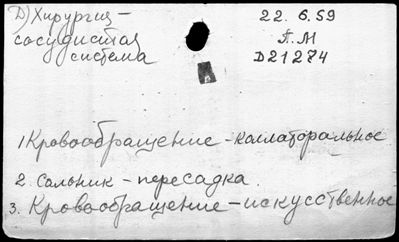 Д) Хирургия –
сосудистая
система
22. 6. 59
П. М
D21274
1 Кровообращение – коллаторальное
2. Сальник – пересадка.
3. Кровообращение – искусственное